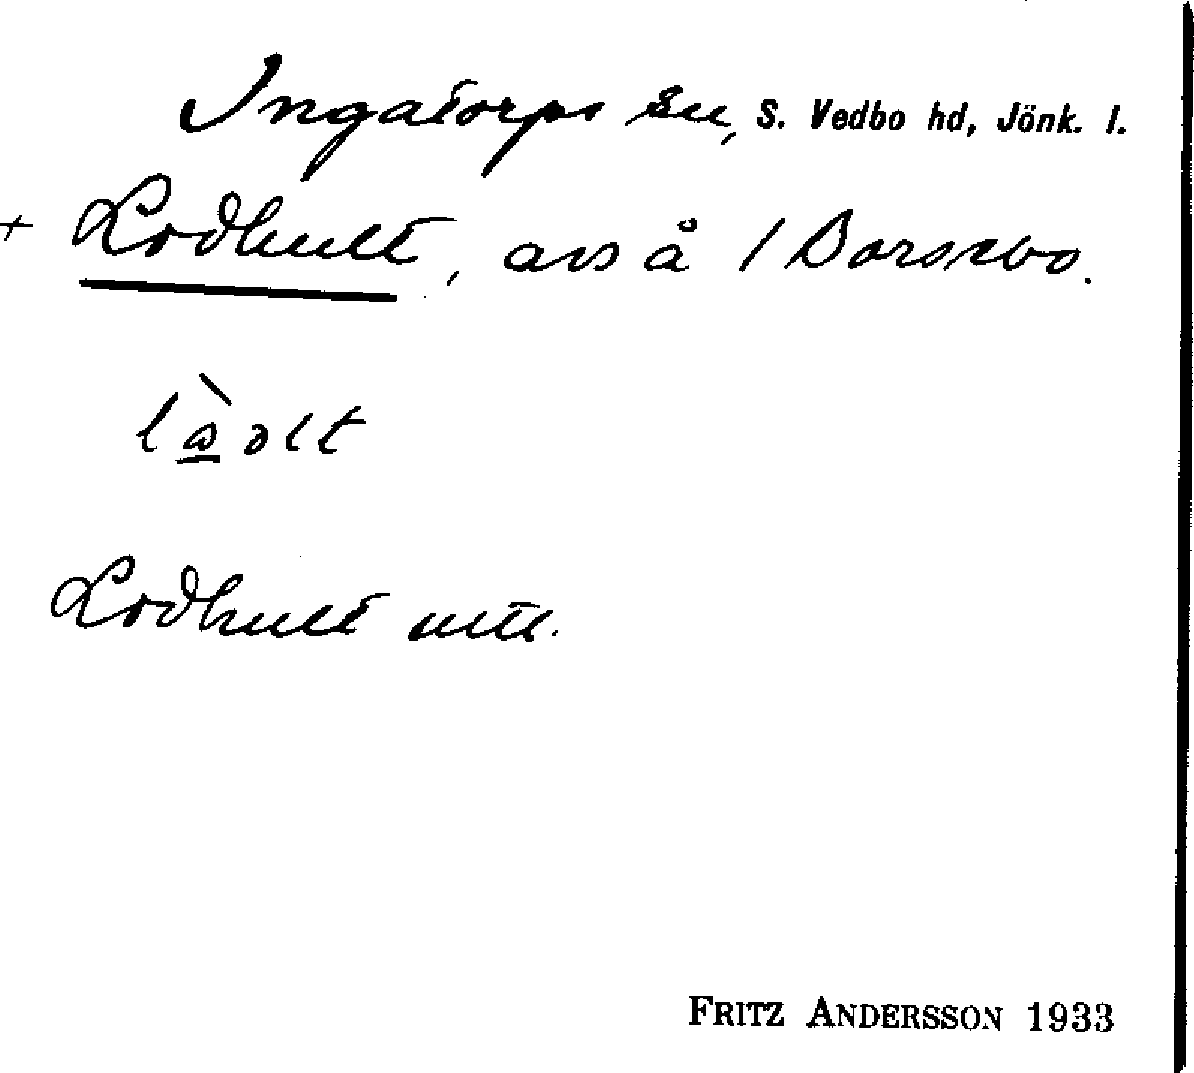 Ingatorps sn, S. Vedbo hd, Jönk. l.
+ Lodhult, avs å 1 Borsebo.
Lodhult utt.
FRITZ ANDERSSON 1933